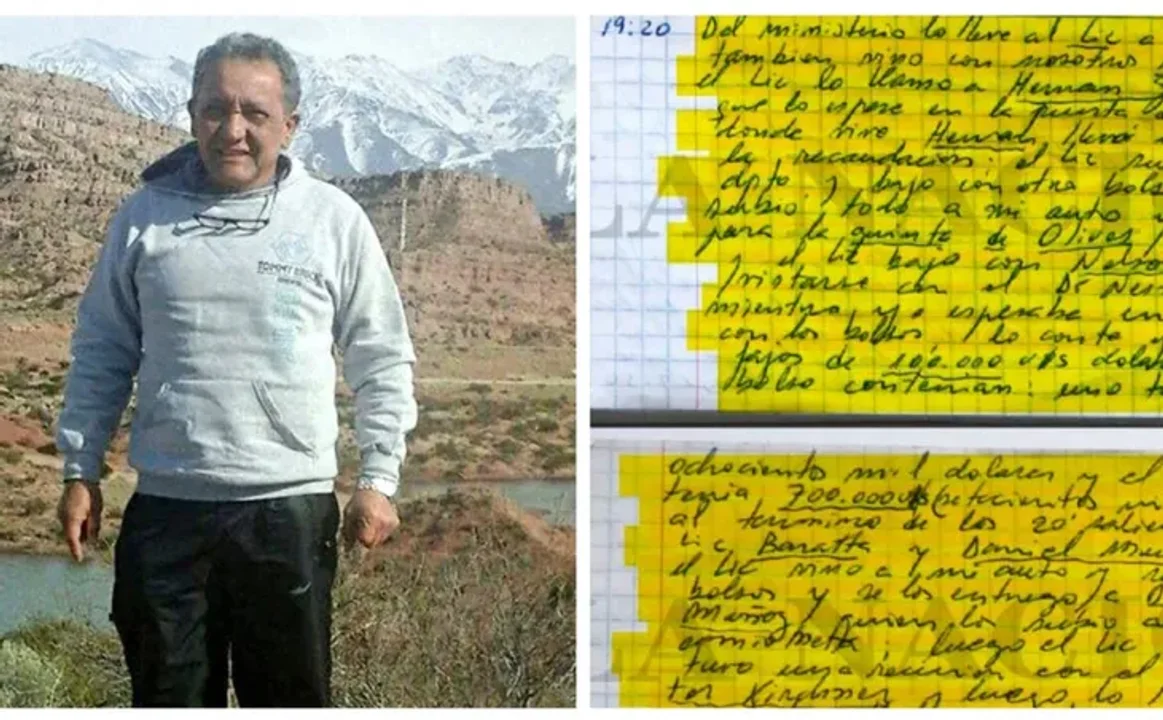 TOMMY
19:20
Del ministerio lo lleve al Lic a
tambien vino con nosotros
el Lic lo llamo a Hernan
que lo espere en la puerta
donde vive Hernan llevó
la recaudacion. el Lic
dpto y bajo con otra bols
subio todo a mi auto
para la quinta de Olivos
y el Lic bajo con Nelso
con el Dr Nes
mientra, yo esperaba en
con los bolsos, lo conte
fajos de 100.000 u$s dolar
bolso contenian: uno t
ochociento mil dolares y el
tenia 700.000 u$s
al termino de los 20' salie
Lic Baratta y Daniel Mu
el Lic vino a mi auto y
bolsos y se los entrego a D
Muñoz, quien los subio a
camioneta, luego el Lic
tuvo una reunion con el
tor Kirchner y luego lo
LA NACI
LA NACI